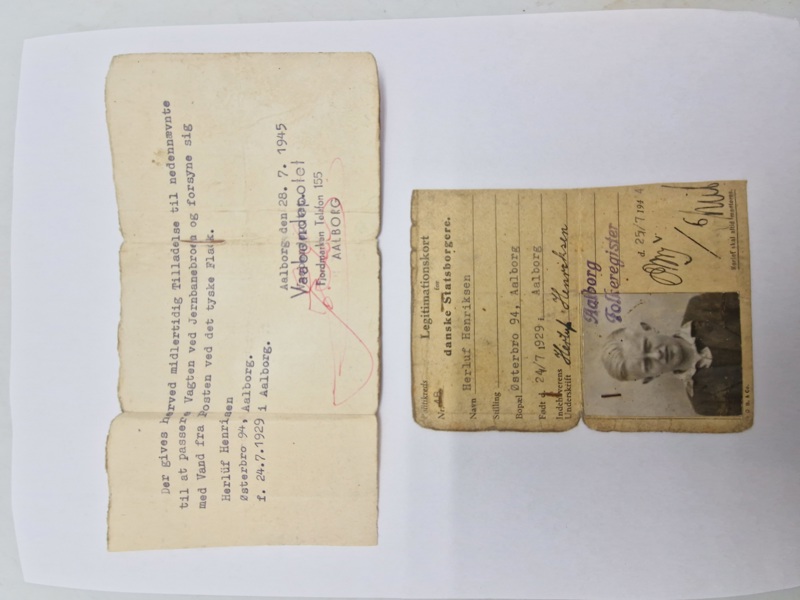 Der gives herved midlertidig Tilladelse til nedennævnte
til at passere Vagten ved Jernbanebroen og forsyne sig
med Vand fra Posten ved det tyske Flak.
Herlüf Henriksen
Østerbro 94, Aalborg.
f. 24.7.1929 i Aalborg.
Aalborg den 28. 7. 1945
Vaabendepotet
Fjordmarken Telefon 155
AALBORG
Legitimationskort
for
danske Statsborgere.
Nr.
Navn Herluf Henriksen
Stilling
Bopæl Østerbro 94, Aalborg
Født d. 24/7 1929 i Aalborg
Indehaverens
Underskrift Herluf Henriksen
Aalborg
Folkeregister
d. 25/7 194
Kortet skal altid medbæres.